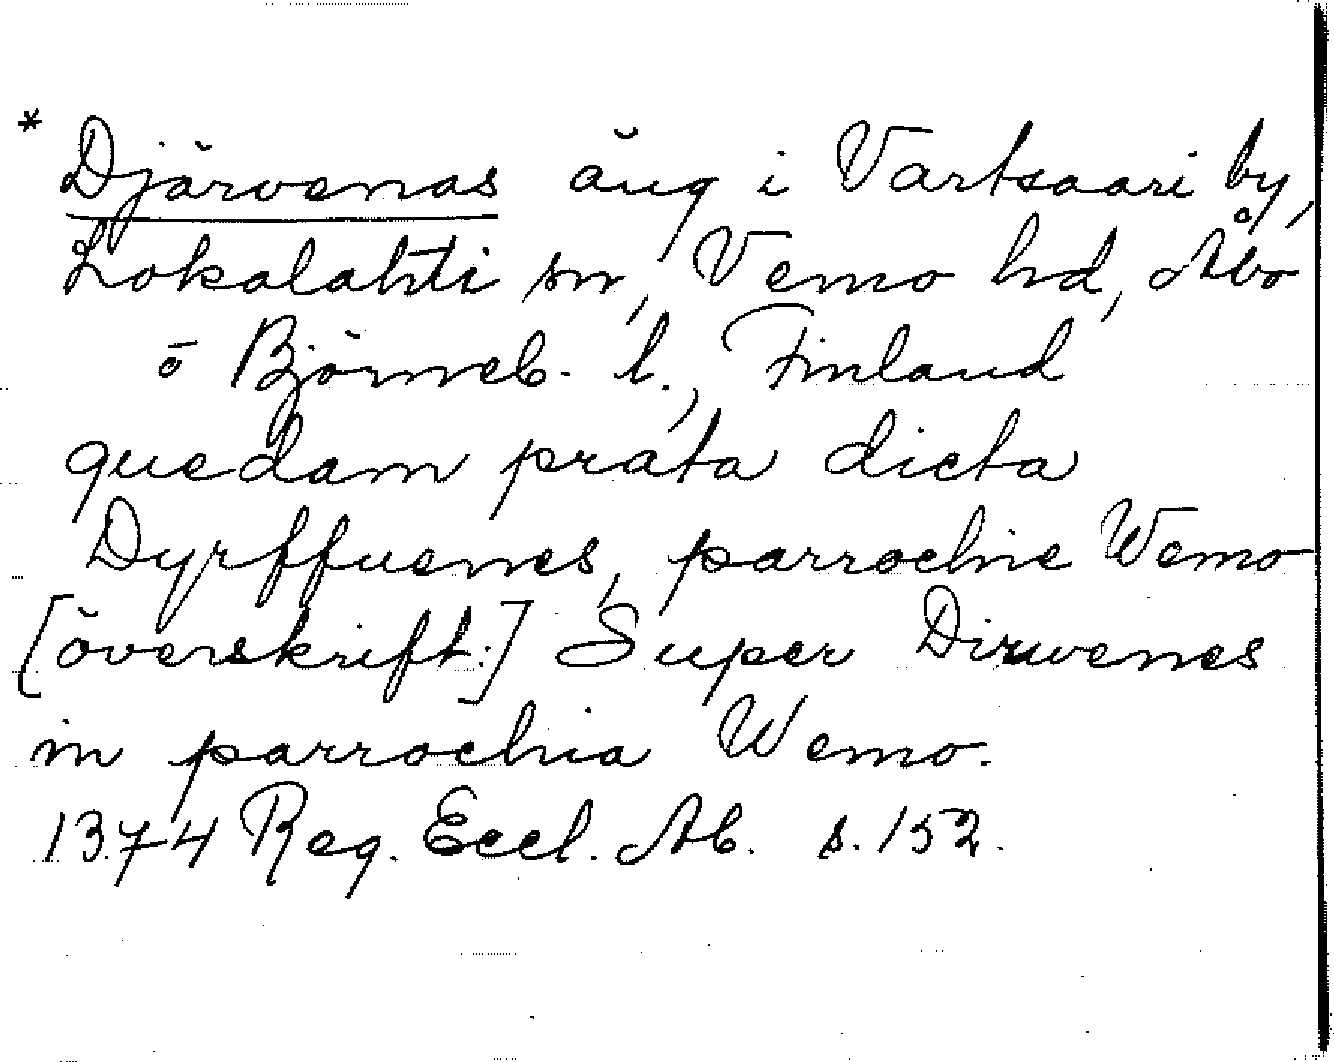 * Djärvenäs äng i Vartsaari by,
Lokalahti sn, Vemo hd, Åbo
o Björneb. l., Finland
quedam prata dicta
Dyrffuenes, parrochie Wemo
[överskrift:] Super Dirwenes
in parrochia Wemo.
1374 Reg. Eccl. Ab. s. 152.